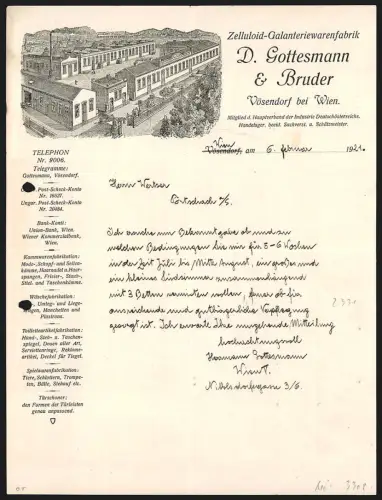 Zelluloid-Galanteriewarenfabrik
D. Gottesmann
& Bruder
Vösendorf bei Wien.
Mitglied d. Hauptverband der Industrie Deutschösterreichs.
Handelsger. beeid. Sachverst. u. Schätzmeister.
TELEPHON
Nr. 9006.
Telegramme:
Gottesmann, Vösendorf.
Post-Scheck-Konto
Ungar. Post-Scheck-Konto
Bank-Konti:
Union-Bank, Wien.
Wiener Kommerzialbank,
Wien.
Kammwarenfabrikation:
Mode-, Schopf- und Seiten-
kämme, Haarnadel u. Haar-
spangen, Haarreifen,
Frisier-, Staub-,
Stiel- und Taschenkämme.
Wäschefabrikation:
Steh-, Umleg- und Liege-
kragen, Manchetten und
Plastrons.
Toiletteartikelfabrikation:
Hand-, Steh- u. Taschen-
spiegel, Dosen aller Art,
Serviettenringe, Reklame-
artikel, Deckel für Tiegel.
Spielwarenfabrikation:
Tiere, Schlottern, Trompe-
ten, Bälle, Stehauf etc.
Türschoner:
den Formen der Türleisten
genau anpassend.
Wien
Vösendorf, am 6. Februar 1921.
Herrn Werzer
Pörtschach a/S.
Ich ersuche um Bekanntgabe ob und zu
welchen Bedingungen Sie mir für 5-6 Wochen
in der Zeit Juli bis Mitte August, ein großes und
ein kleines Kinderzimmer zusammenhängend
mit 3 Betten vermieten wollen, ferner ob für
ausreichende und gutbürgerliche Verpflegung
gesorgt ist. Ich erwarte Ihre umgehende Mitteilung
hochachtungsvoll
Hermann Gottesmann
Wien